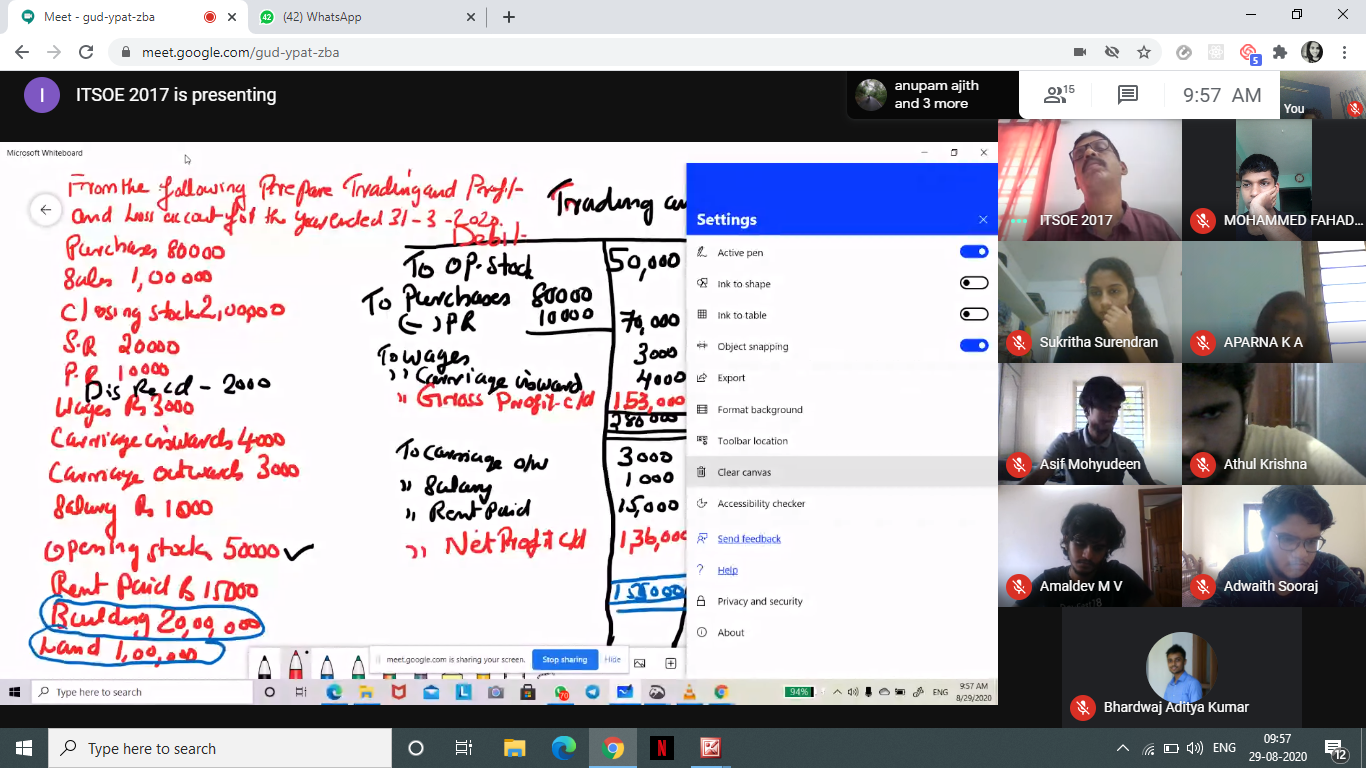 Meet - gud-ypat-zba
(42) WhatsApp
meet.google.com/gud-ypat-zba
5
I
ITSOE 2017 is presenting
anupam ajith
and 3 more
15
9:57 AM
You
Microsoft Whiteboard
From the following Prepare Trading and Profit
and Loss account for the year ended 31-3-2020
Purchases 80000
Sales 1,00000
Closing stock 2,00,000
S.R 20000
P.R 10000
Dis Recd - 2000
Wages Rs 3000
Carriage inwards 4000
Carriage outwards 3000
Salary Rs 1000
Opening stock 50000 ✓
Rent Paid Rs 15000
Building 20,00,000
Land 1,00,000
Trading
Debit
To OP. stock 50,000
To Purchases 80000
(-) PR 10000 70,000
To wages 3000
" Carriage inward 4000
" Gross Profit c/d 153,000
280000
To Carriage o/w 3000
" Salary 1000
" Rent Paid 15,000
" Net Profit c/d 1,36,000
155000
Settings
Active pen
Ink to shape
Ink to table
Object snapping
Export
Format background
Toolbar location
Clear canvas
Accessibility checker
Send feedback
Help
Privacy and security
About
meet.google.com is sharing your screen.
Stop sharing
Hide
Type here to search
70
94%
ENG
9:57 AM
8/29/2020
ITSOE 2017
MOHAMMED FAHAD...
Sukritha Surendran
APARNA K A
Asif Mohyudeen
Athul Krishna
Amaldev M V
Adwaith Sooraj
Bhardwaj Aditya Kumar
Type here to search
N
ENG
09:57
29-08-2020
12